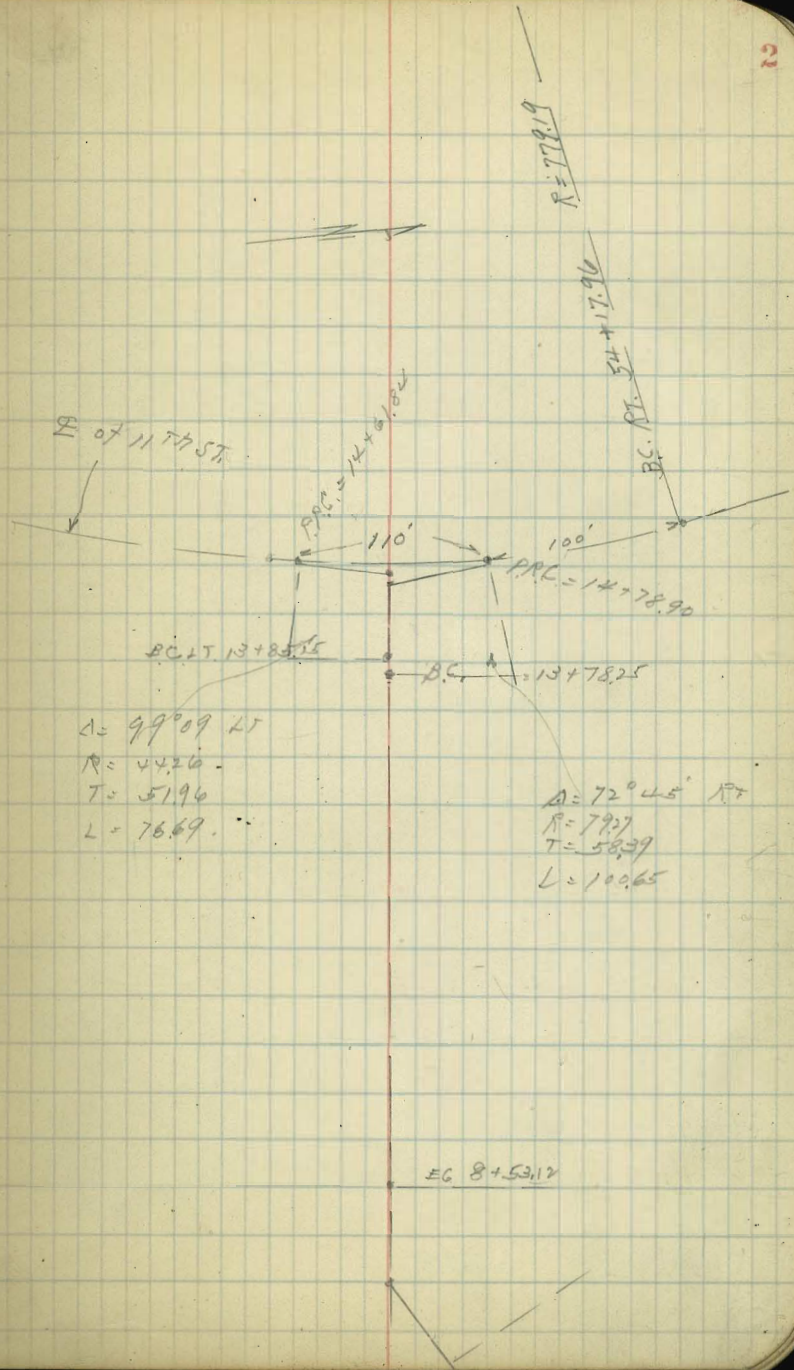 2
R=779.19
B.C. RT. 54+17.96
℄ of 11TH ST.
P.R.C. = 14+61.84
110'
100'
P.R.C. = 14+78.90
BC LT 13+85.15
B.C. = 13+78.25
Δ= 99°09 LT
R= 44.26
T= 51.96
L= 76.69
Δ= 72°45' RT
R= 79.27
T= 58.39
L= 100.65
EC 8+53.12